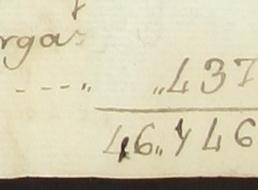 rgas
- - - - „ „437
46„746